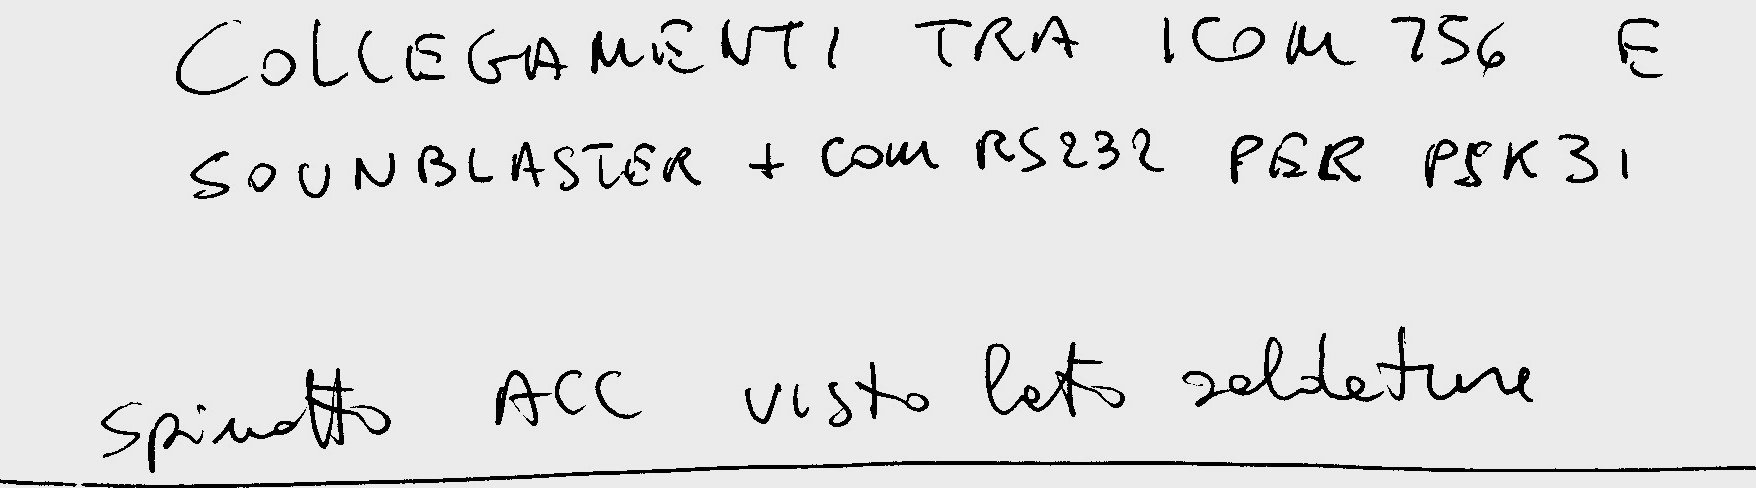 COLLEGAMENTI TRA ICOM 756 E
SOUNBLASTER + COM RS232 PER PSK31
spinotto ACC visto lato saldature